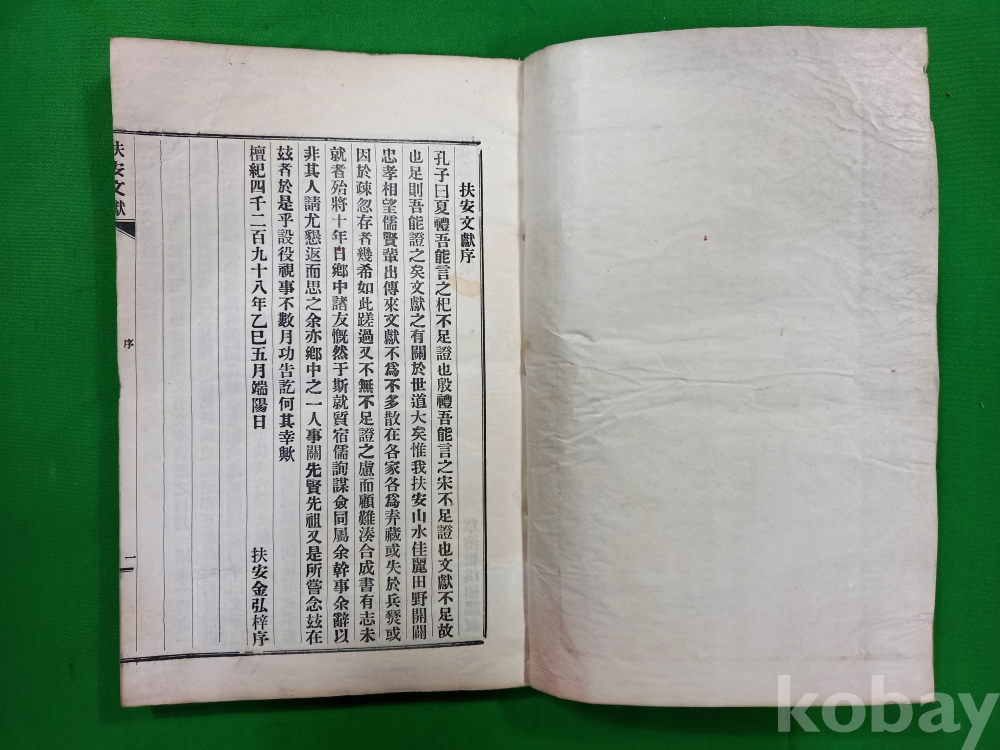 扶安文獻序
孔子曰夏禮吾能言之杞不足證也殷禮吾能言之宋不足證也文獻不足故
也足則吾能證之矣文獻之有關於世道大矣惟我扶安山水佳麗田野開闢
忠孝相望儒賢輩出傳來文獻不爲不多散在各家各爲弆藏或失於兵燹或
因於疎忽存者幾希如此蹉過又不無不足證之慮而顧難湊合成書有志未
就者殆將十年日鄕中諸友慨然于斯就質宿儒詢謀僉同屬余幹事余辭以
非其人請尤懇返而思之余亦鄕中之一人事關先賢先祖又是所嘗念玆在
玆者於是乎設役視事不數月功告訖何其幸歟
檀紀四千二百九十八年乙巳五月端陽日
扶安金弘梓序
扶安文獻
序
一
kobay